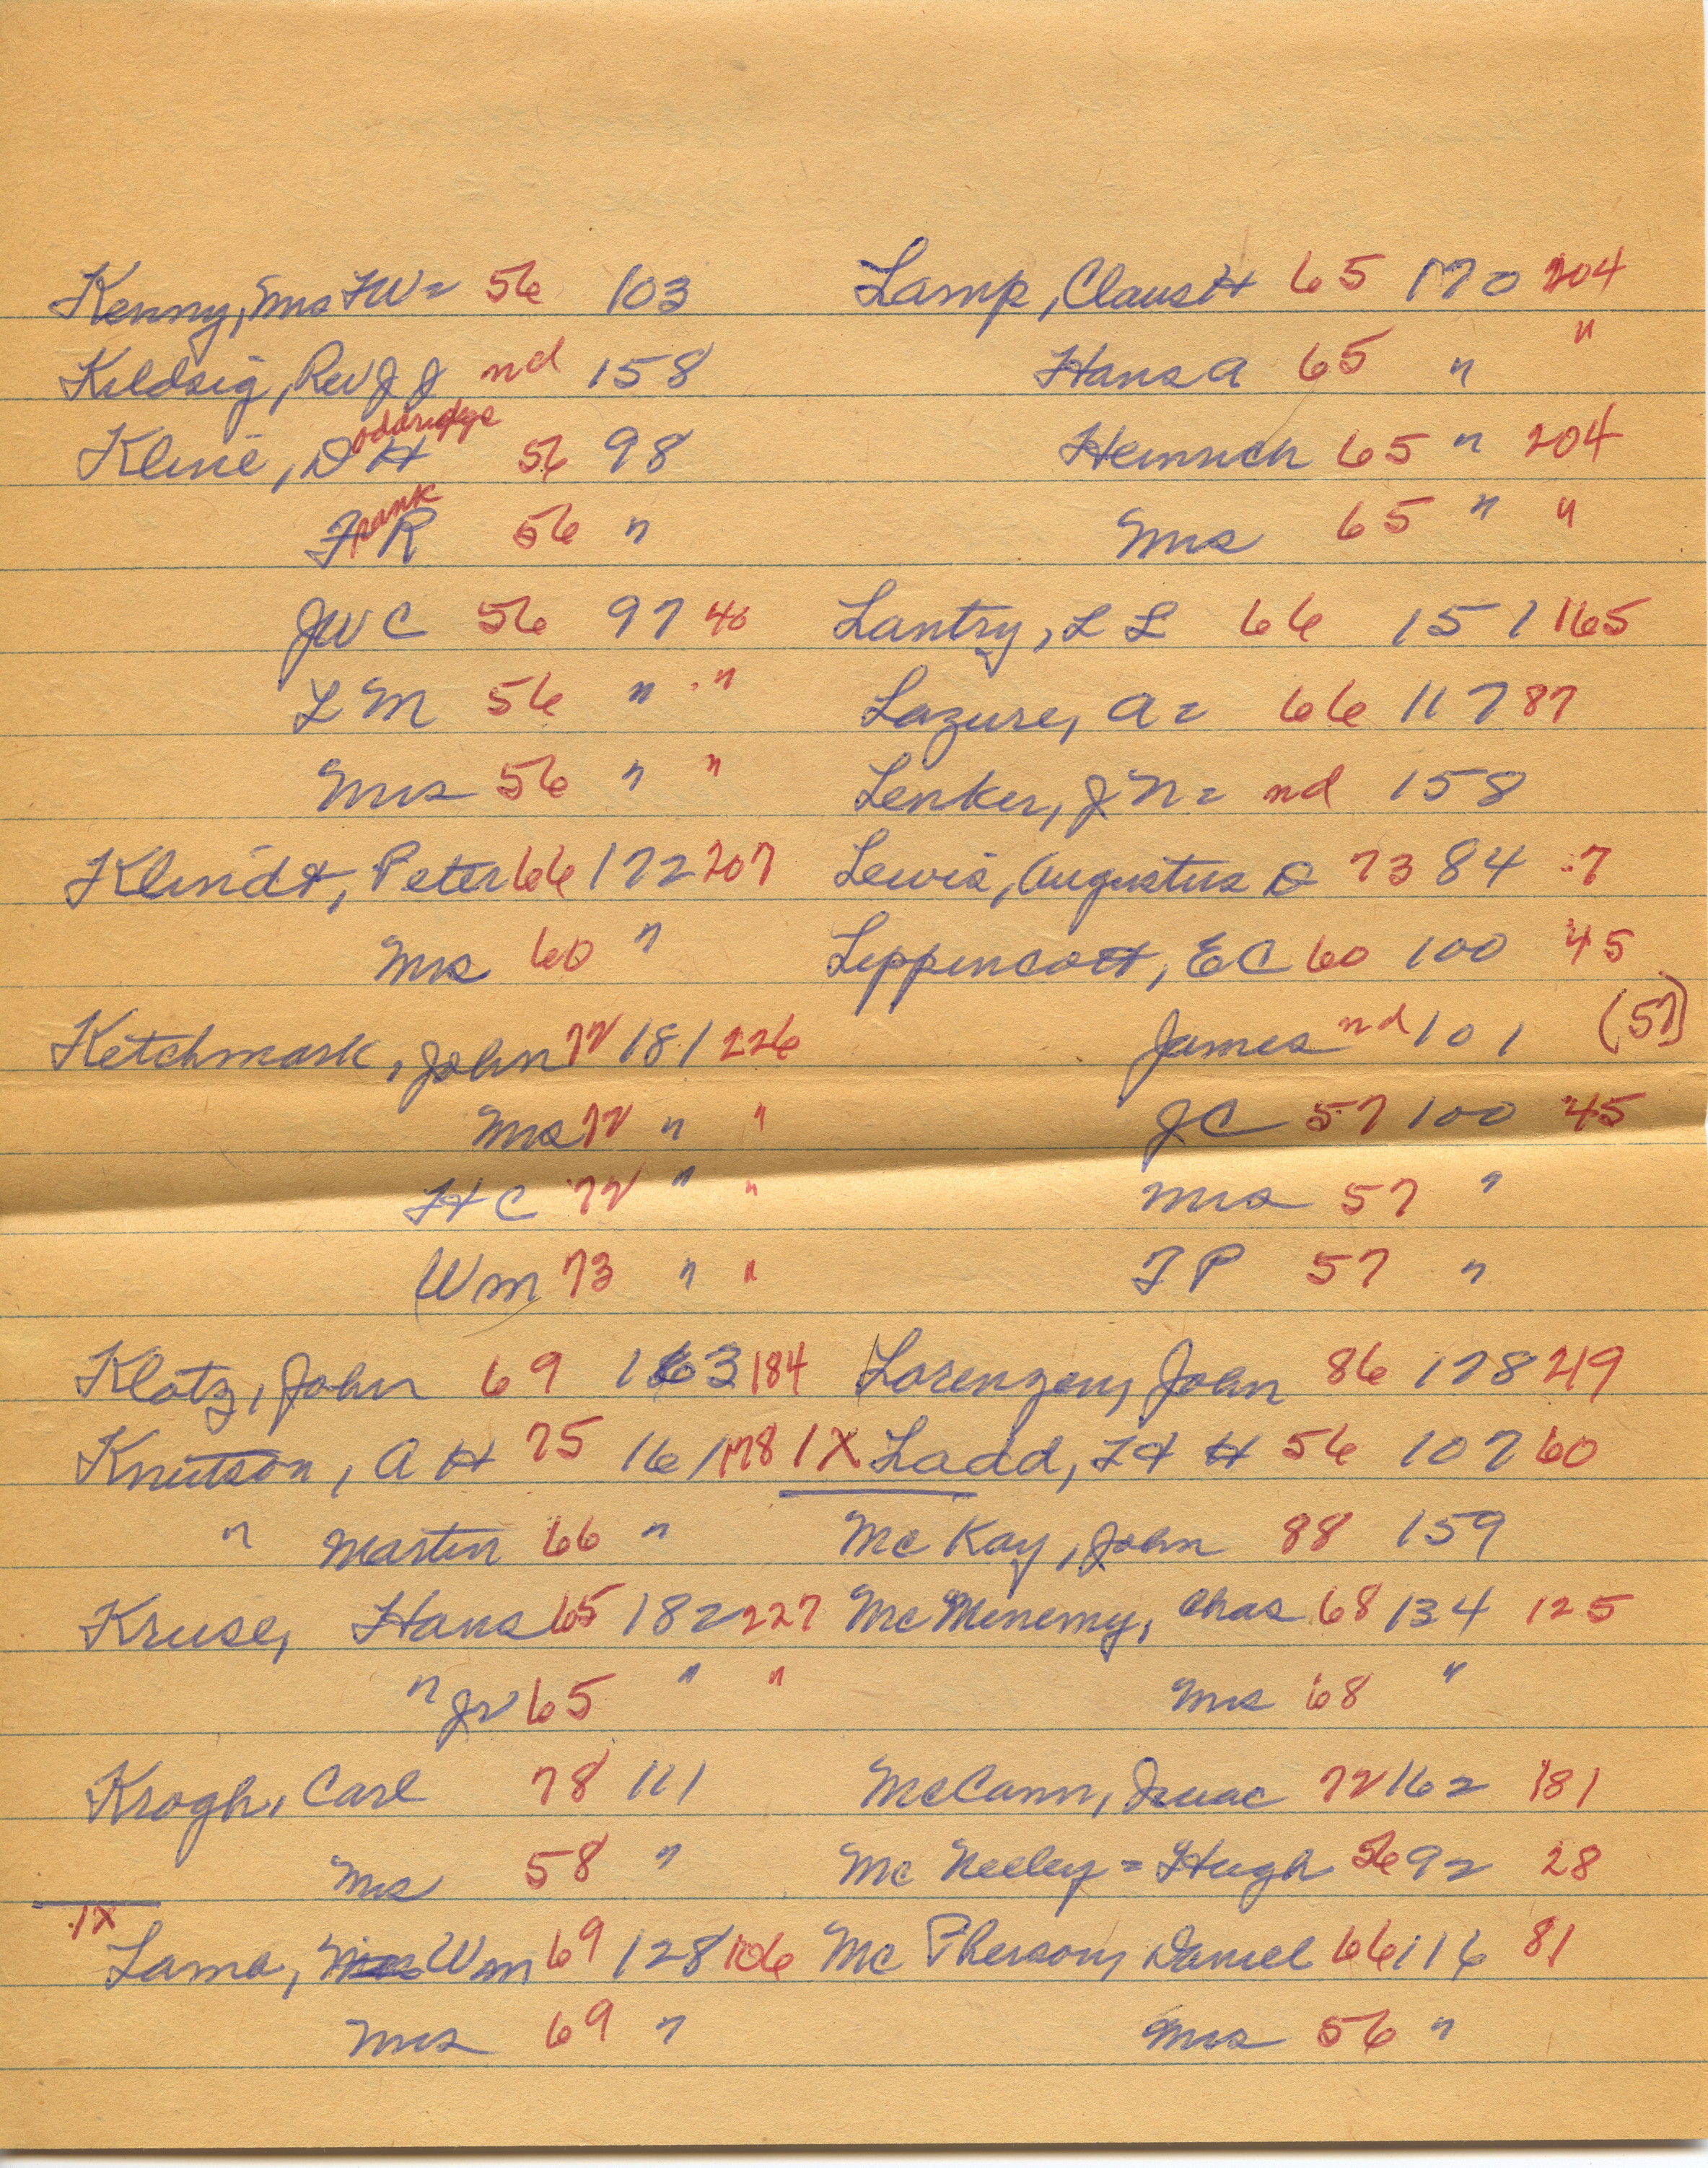 Kenny, Mrs FW = 56 103
Kildsig, Rev J J nd 158
Kline, Doddridge H 56 98
Frank R 56 "
JWC 56 97 40
L M 56 " "
Mrs 56 " "
Klindt, Peter 66 172 207
Mrs 60 "
Ketchmark, John 72 181 226
Mrs 72 " "
H C 72 " "
Wm 73 " "
Klotz, John 69 163 184
Knutson, A H 75 161 178
" Martin 66 "
Kruse, Hans 65 182 227
" Jr 65 " "
Krogh, Carl 78 111
Mrs 58 "
1X
Lama, Wm 69 128 106
Mrs 69 "
Lamp, Claus H 65 170 204
Hans A 65 " "
Heinrich 65 " 204
Mrs 65 " "
Lantry, L L 66 151 165
Lazure, A = 66 117 87
Lenker, J N = nd 158
Lewis, Augustus D 73 84 7
Lippencott, EC 60 100 45
James nd 101 (57)
JC 57 100 45
Mrs 57 "
T P 57 "
Lorenzen, John 86 178 219
1X Ladd, H 56 107 60
McKay, John 88 159
McMenemy, Chas 68 134 125
Mrs 68 "
McCann, 72 162 181
McNeeley = Hugh 56 92 28
McPherson, Daniel 66 116 81
Mrs 56 "